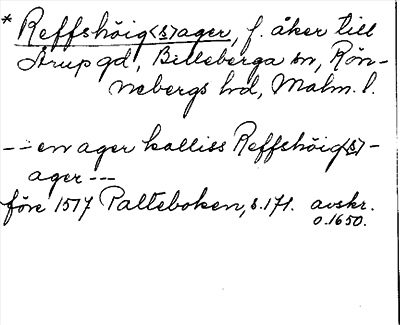 * Reffshöig<s>ager, f. åker till
Arup gd, Billeberga sn, Rön-
nebergs hd, Malm. l.
--- en ager kalliss Reffshöig<s>-
ager ---
före 1517 Palteboken, s. 171. avskr.
o. 1650.